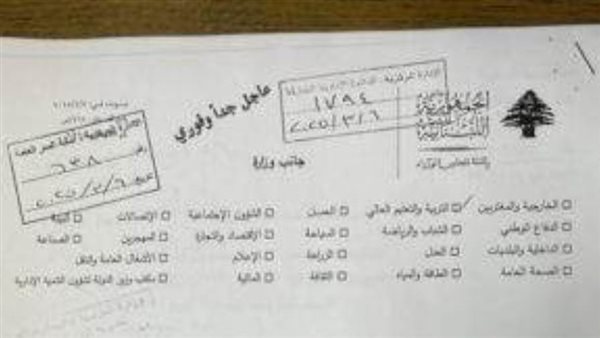 عاجل جداً وفوري
١٧٩٤
٢٠٢٥/٣/٦
الجمهورية
اللبنانية
رئاسة مجلس الوزراء
٦٣٨
٢٠٢٥/٣/٦
جانب وزارة
الخارجية والمغتربين
التربية والتعليم العالي
العمل
الشؤون الإجتماعية
الإتصالات
البيئة
الدفاع الوطني
الشباب والرياضة
السياحة
الإقتصاد والتجارة
المهجرين
الصناعة
الداخلية والبلديات
العدل
الزراعة
الإعلام
الأشغال العامة والنقل
الصحة العامة
الطاقة والمياه
الثقافة
المالية
مكتب وزير الدولة لشؤون التنمية الإدارية